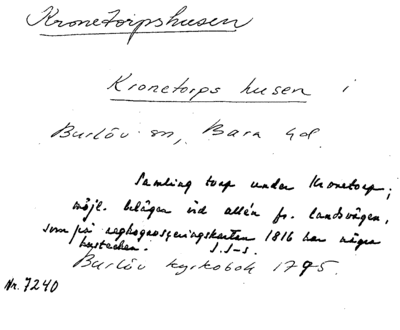 Kronetorpshusen
Kronetorps husen i
Burlöv sn, Bara hd.
Samling torp under Kronetorp;
möjl. belägen vid allén fr. landsvägen,
som på rekognosceringskartan 1816 har några
hustecken. I. I-s.
Burlöv kyrkobok 1795.
Nr. 7240